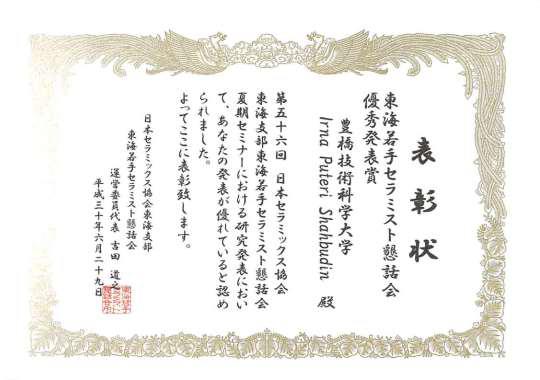 表彰状
東海若手セラミスト懇話会
優秀発表賞
豊橋技術科学大学
Irna Puteri Shahbudin 殿
第五十六回 日本セラミックス協会
東海支部東海若手セラミスト懇話会
夏期セミナーにおける研究発表におい
て、あなたの発表が優れていると認め
られました。
よってここに表彰致します。
日本セラミックス協会東海支部
東海若手セラミスト懇話会
運営委員代表 吉田 道之
平成三十年六月二十九日